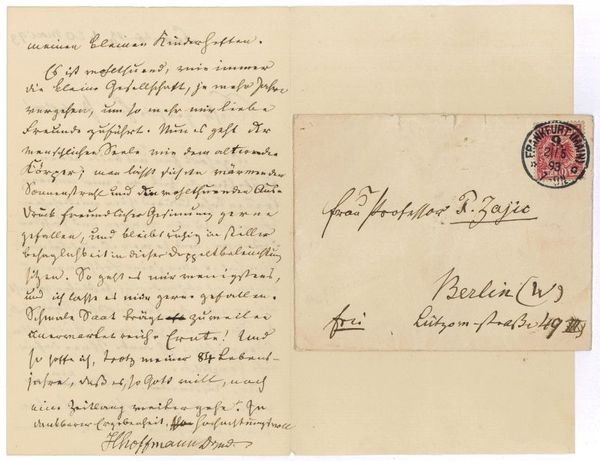 meinen kleinen Kinderheften.
Es ist wohlthuend, wie immer
die kleine Gesellschaft, je mehr Jahre
vergehen, um so mehr mir liebe
Freunde zuführt. Nun es geht der
menschlichen Seele wie dem alternden
Körper; man läßt sich den wärmenden
Sonnenstrahl und den wohlthuenden Aus-
druck freundlicher Gesinnung gerne
gefallen, und bleibt ruhig in stiller
Behaglichkeit in dieser Doppelbeleuchtung
sitzen. So geht es mir wenigstens,
und ich lasse es mir gerne gefallen.
Schmale Saat trägt zuweilen
unerwartet reiche Ernte! Und
so hoffe ich, trotz meiner 84 Lebens-
jahre, daß es, so Gott will, noch
eine Zeitlang weiter gehe! In
dankbarer Ergebenheit, hochachtungsvoll
Hoffmann
FRANKFURT (MAIN)
9
93
Frau Professor F. Zajic
Berlin (W)
frei Lützow-straße 49 III